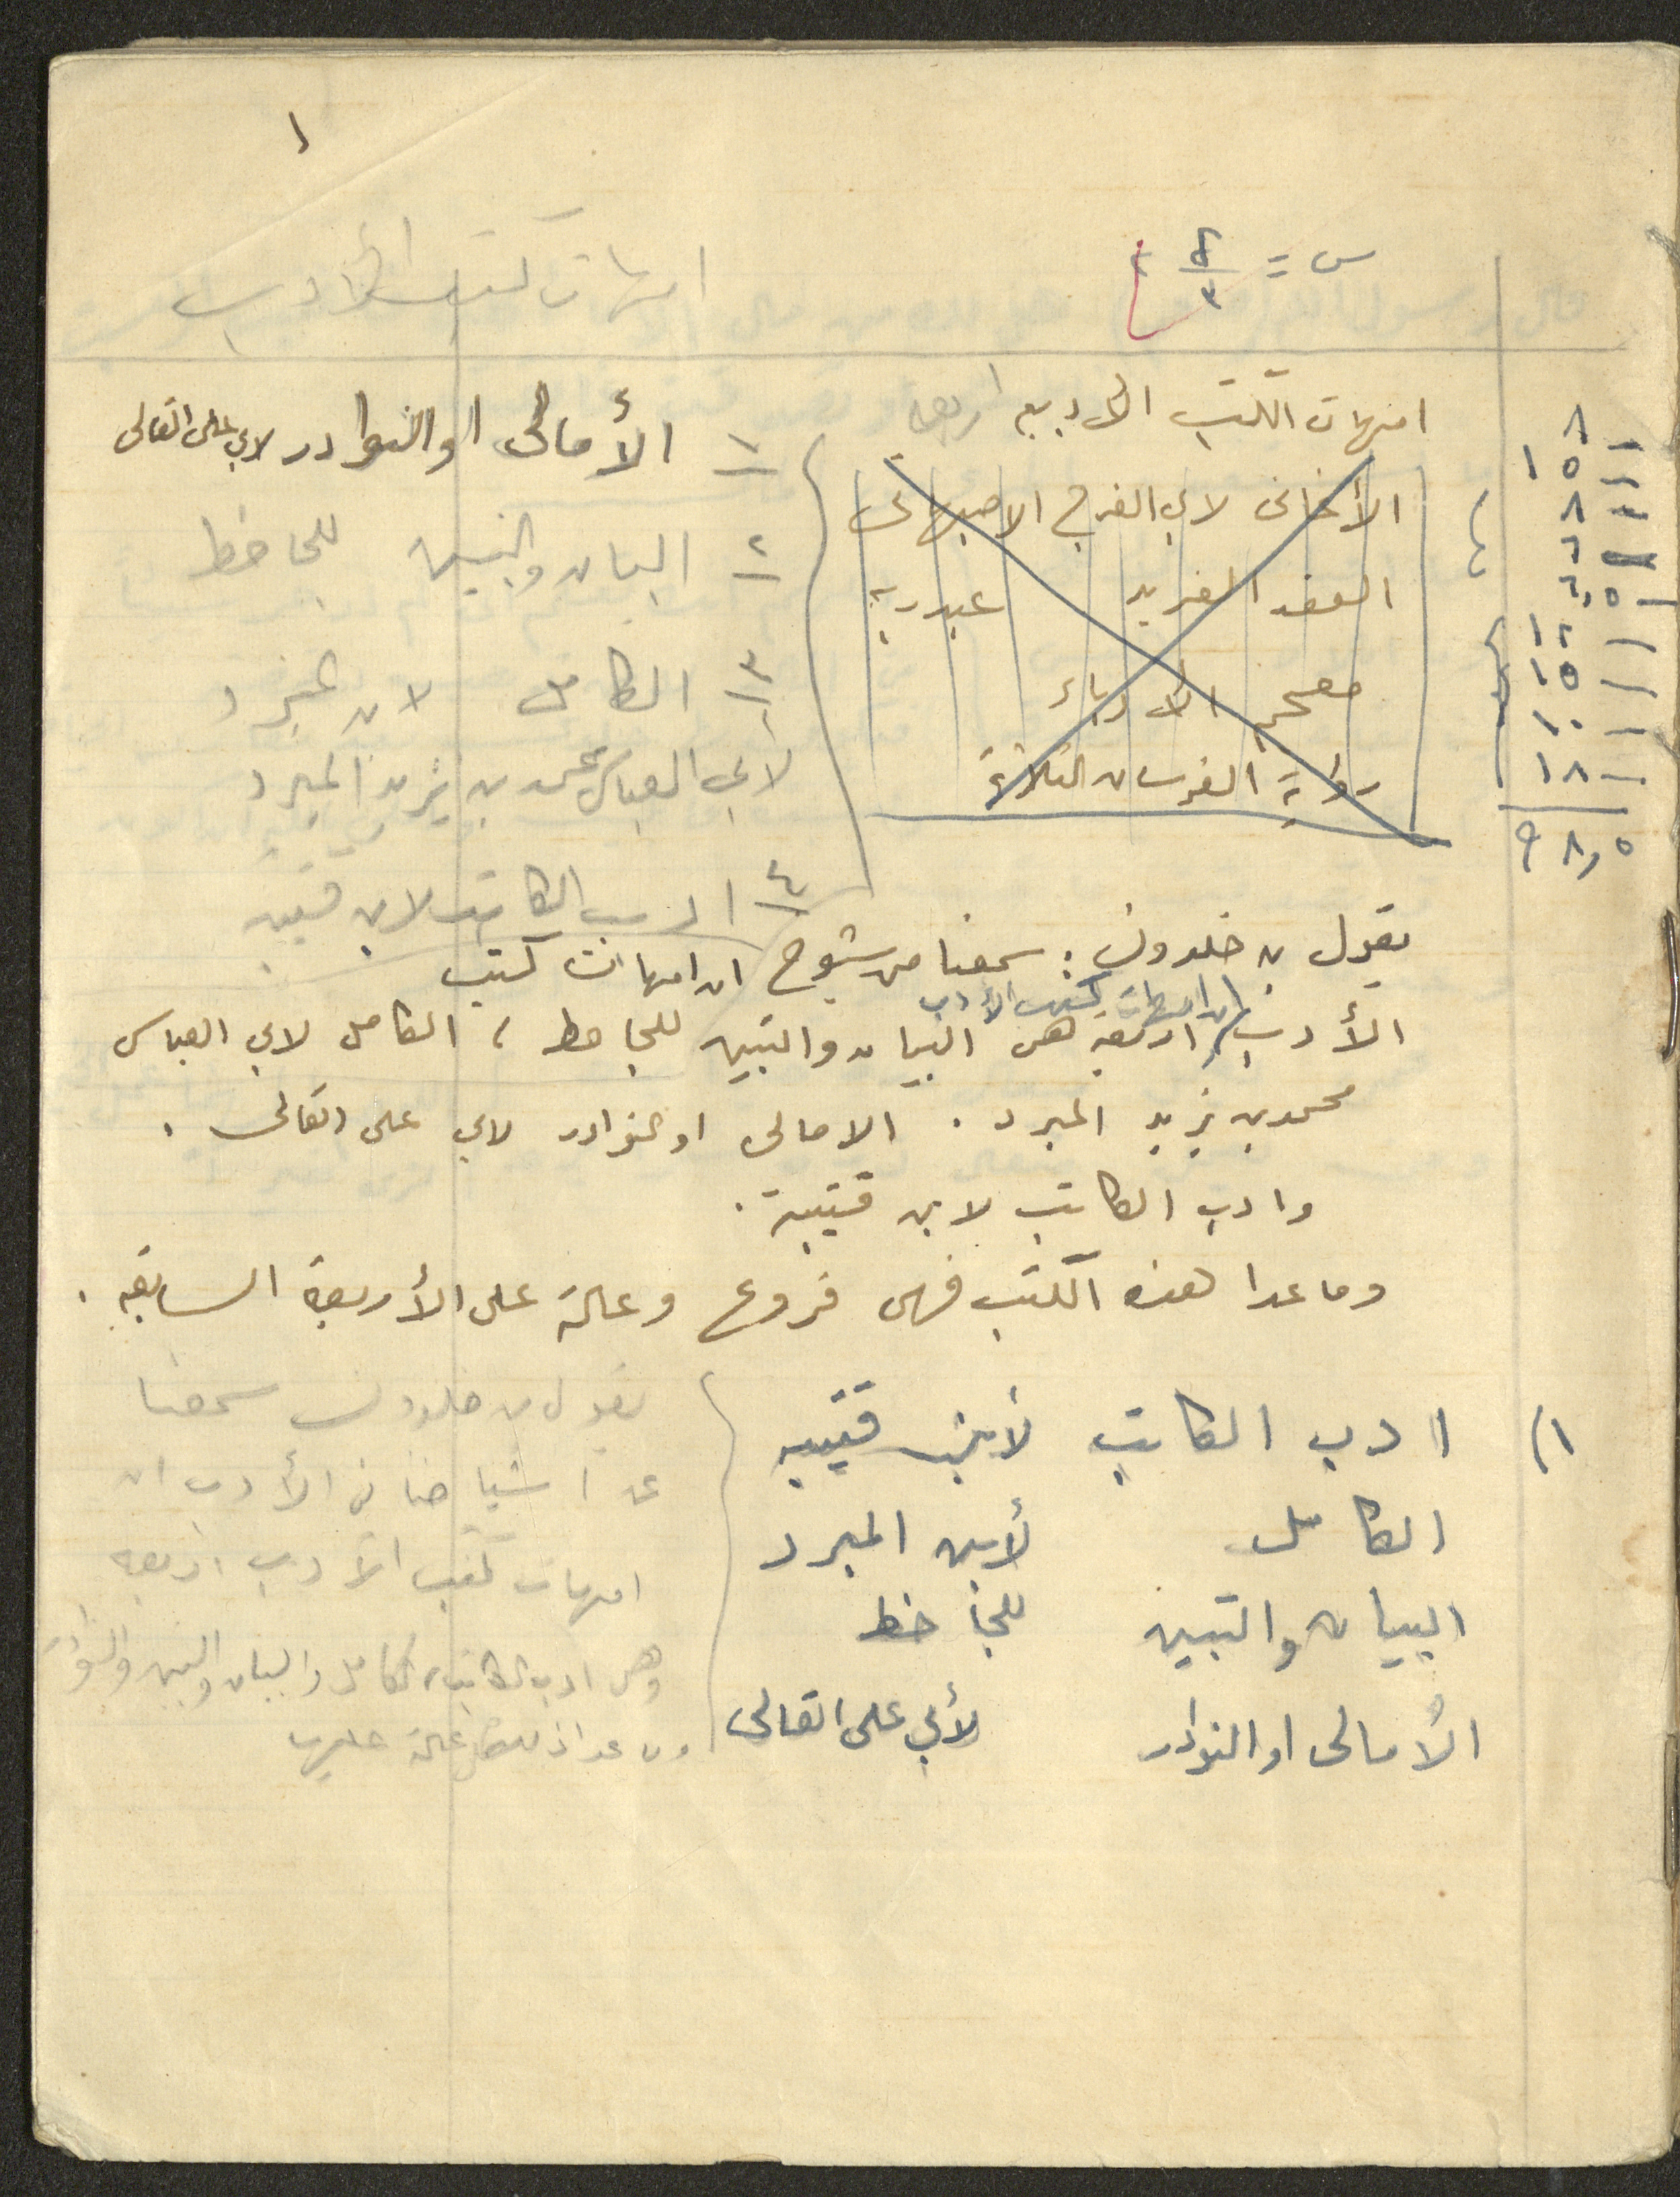 ١
امهات كتب الأدب
س =
امهات الكتب الادبيه اربعه
الأغاني لابي الفرج الاصبهاني
العقد الفريد عبدربه
معجم الادباء
رواية الفرسان الثلاثة
١ الأمالى او النوادر لابي على القالى
٢ البيان والتبيين للجاحظ
٣ الكامل لابن المبرد
لأبي العباس محمد بن يزيد المبرد
٤ ادب الكاتب لابن قتيبه
٨
١٥
٨
٦
١٢
١٥
١٠
١٨
٩٨,٥
يقول بن خلدون : سمعنا من شيوخ ان امهات كتب
ان امهات كتب الأدب
الأدب اربعة هى البيان والتبيين للجاحظ ، الكامل لابي العباس
محمد بن يزيد المبرد . الامالى او النوادر لابي على القالى .
وادب الكاتب لابن قتيبة .
وما عدا هذه الكتب فهى فروع وعالة على الأربعة السابقه .
١) ادب الكاتب لأبن قتيبه
الكامل لأبن المبرد
البيان والتبيين للجاحظ
الأمالى او النوادر لأبي على القالى
يقول بن خلدون سمعنا
عن اشياخنا فى الأدب ان
امهات كتب الأدب اربعه
وهى ادب الكاتب، الكامل والبيان والتبين والنوادر
عالة عليها